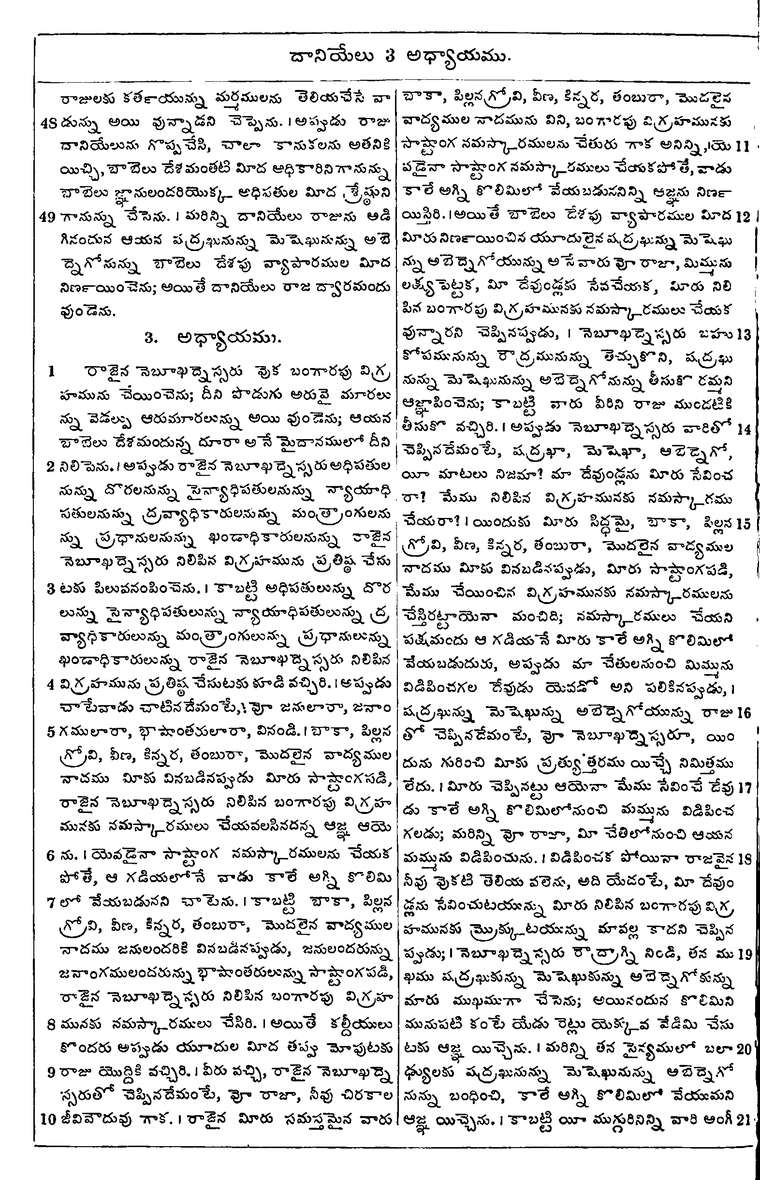 దానియేలు 3 అధ్యాయము.
రాజులకు కర్తయున్ను మర్మములను తెలియచేసే వా
48 డున్ను అయి వున్నాడని చెప్పెను. ।అప్పుడు రాజు
దానియేలును గొప్పచేసి, చాలా కానుకలను అతనికి
యిచ్చి, బాబెలు దేశమంతటి మీద అధికారినిగానున్ను
బాబెలు జ్ఞానులందరియొక్క అధిపతుల మీద శ్రేష్ఠుని
49 గానున్ను చేసెను. ।మరిన్ని దానియేలు రాజును అడి
గినందున ఆయన షద్రఖునున్ను మెషెఖునున్ను అబె
ద్నెగోనున్ను బాబెలు దేశపు వ్యాపారముల మీద
నిర్ణయించెను; అయితే దానియేలు రాజ ద్వారమందు
వుండెను.
3. అధ్యాయము.
1 రాజైన నెబూఖద్నెస్సరు వుక బంగారపు విగ్ర
హమును చేయించెను; దీని పొడుగు అరువై మూరలు
న్ను వెడల్పు ఆరుమూరలున్ను అయి వుండెను; ఆయన
బాబెలు దేశమందున్న దూరా అనే మైదానములో దీని
2 నిలిపెను. ।అప్పుడు రాజైన నెబూఖద్నెస్సరు అధిపతుల
నున్ను దొరలనున్ను సైన్యాధిపతులనున్ను న్యాయాధి
పతులనున్ను ద్రవ్యాధికారులనున్ను మంత్రాంగులను
న్ను ప్రధానులనున్ను ఖండాధికారులనున్ను రాజైన
నెబూఖద్నెస్సరు నిలిపిన విగ్రహమును ప్రతిష్ఠ చేసు
3 టకు పిలువనంపించెను. । కాబట్టి అధిపతులున్ను దొర
లున్ను సైన్యాధిపతులున్ను న్యాయాధిపతులున్ను ద్ర
వ్యాధికారులున్ను మంత్రాంగులున్ను ప్రధానులున్ను
ఖండాధికారులున్ను రాజైన నెబూఖద్నెస్సరు నిలిపిన
4 విగ్రహమును ప్రతిష్ఠ చేసుటకు కూడి వచ్చిరి. ।అప్పుడు
చాటేవాడు చాటినదేమంటే,। వో జనులారా, జనాం
5 గములారా, భాషాంతరులారా, వినండి. ।బాకా, పిల్లన
గ్రోవి, వీణ, కిన్నర, తంబురా, మొదలైన వాద్యముల
నాదము మీకు వినబడినప్పుడు మీరు సాష్టాంగపడి,
రాజైన నెబూఖద్నెస్సరు నిలిపిన బంగారపు విగ్రహ
మునకు నమస్కారములు చేయవలసినదన్న ఆజ్ఞ ఆయె
6 ను. । యెవడైనా సాష్టాంగ నమస్కారములను చేయక
పోతే, ఆ గడియలోనే వాడు కాలే అగ్ని కొలిమి
7 లో వేయబడునని చాటెను. ।కాబట్టి బాకా, పిల్లన
గ్రోవి, వీణ, కిన్నర, తంబురా, మొదలైన వాద్యముల
నాదము జనులందరికి వినబడినప్పుడు, జనులందరున్ను
జనాంగములందరున్ను భాషాంతరులున్ను సాష్టాంగపడి,
రాజైన నెబూఖద్నెస్సరు నిలిపిన బంగారపు విగ్రహ
8 మునకు నమస్కారములు చేసిరి. । అయితే కల్దీయులు
కొందరు అప్పుడు యూదుల మీద తప్పు మోపుటకు
9 రాజు యొద్దికి వచ్చిరి. । వీరు వచ్చి, రాజైన నెబూఖద్నె
స్సరుతో చెప్పినదేమంటే, వో రాజా, నీవు చిరకాల
10 జీవివౌదువు గాక. । రాజైన మీరు సమస్తమైన వారు
బాకా, పిల్లనగ్రోవి, వీణ, కిన్నర, తంబురా, మొదలైన
వాద్యముల నాదమును విని, బంగారపు విగ్రహమునకు
సాష్టాంగ నమస్కారములను చేతురు గాక అనిన్ని,।యె 11
వడైనా సాష్టాంగ నమస్కారములు చేయకపోతే, వాడు
కాలే అగ్ని కొలిమిలో వేయబడుననిన్ని ఆజ్ఞను నిర్ణ
యిస్తిరి. ।అయితే బాబెలు దేశపు వ్యాపారముల మీద 12
మీరు నిర్ణయించిన యూదులైన షద్రఖున్ను మెషెఖు
న్ను అబెద్నెగోయున్ను అనే వారు వో రాజా, మిమ్మును
లక్ష్యపెట్టక, మీ దేవుండ్లకు సేవచేయక, మీరు నిలి
పిన బంగారపు విగ్రహమునకు నమస్కారములు చేయక
వున్నారని చెప్పినప్పుడు, । నెబూఖద్నెస్సరు బహు 13
కోపమునున్ను రౌద్రమునున్ను తెచ్చుకొని, షద్రఖు
నున్ను మెషెఖునున్ను అబెద్నెగోనున్ను తీసుకొ రమ్మని
ఆజ్ఞాపించెను; కాబట్టి వారు వీరిని రాజు ముందటికి
తీసుకొ వచ్చిరి. ।అప్పుడు నెబూఖద్నెస్సరు వారితో 14
చెప్పినదేమంటే, షద్రఖా, మెషెఖా, అబెద్నెగో,
యీ మాటలు నిజమా? మా దేవుండ్లను మీరు సేవించ
రా? మేము నిలిపిన విగ్రహమునకు నమస్కారము
చేయరా? ।యిందుకు మీరు సిద్ధమై, బాకా, పిల్లన 15
గ్రోవి, వీణ, కిన్నర, తంబురా, మొదలైన వాద్యముల
నాదము మీకు వినబడినప్పుడు, మీరు సాష్టాంగపడి,
మేము చేయించిన విగ్రహమునకు నమస్కారములను
చేస్తిరట్టాయెనా మంచిది; నమస్కారములు చేయని
పక్షమందు ఆ గడియనే మీరు కాలే అగ్ని కొలిమిలో
వేయబడుదురు, అప్పుడు మా చేతులనుంచి మిమ్మును
విడిపించగల దేవుడు యెవడో అని పలికినప్పుడు,।
షద్రఖున్ను మెషెఖున్ను అబెద్నెగోయున్ను రాజు 16
తో చెప్పినదేమంటే, వో నెబూఖద్నెస్సరూ, యిం
దును గురించి మీకు ప్రత్యుత్తరము యిచ్చే నిమిత్తము
లేదు. ।మీరు చెప్పినట్టు ఆయెనా మేము సేవించే దేవు 17
డు కాలే అగ్ని కొలిమిలోనుంచి మమ్మును విడిపించ
గలడు; మరిన్ని వో రాజా, మీ చేతిలోనుంచి ఆయన
మమ్మును విడిపించును. । విడిపించక పోయినా రాజవైన 18
నీవు వుకటి తెలియ వలెను, అది యేదంటే, మీ దేవుం
డ్లను సేవించుటయున్ను మీరు నిలిపిన బంగారపు విగ్ర
హమునకు మ్రొక్కుటయున్ను మావల్ల కాదని చెప్పిన
ప్పుడు; । నెబూఖద్నెస్సరు రౌద్రాగ్ని నిండి, తన ము 19
ఖము షద్రఖుకున్ను మెషెఖుకున్ను అబెద్నెగోకున్ను
మారు ముఖముగా చేసెను; అయినందున కొలిమిని
మునుపటి కంటే యేడు రెట్లు యెక్కువ వేడిమి చేసు
టకు ఆజ్ఞ యిచ్చెను. ।మరిన్ని తన సైన్యములో బలా 20
ఢ్యులకు షద్రఖునున్ను మెషెఖునున్ను అబెద్నెగో
నున్ను బంధించి, కాలే అగ్ని కొలిమిలో వేయుమని
ఆజ్ఞ యిచ్చెను. । కాబట్టి యీ ముగ్గురినిన్ని వారి అంగీ 21